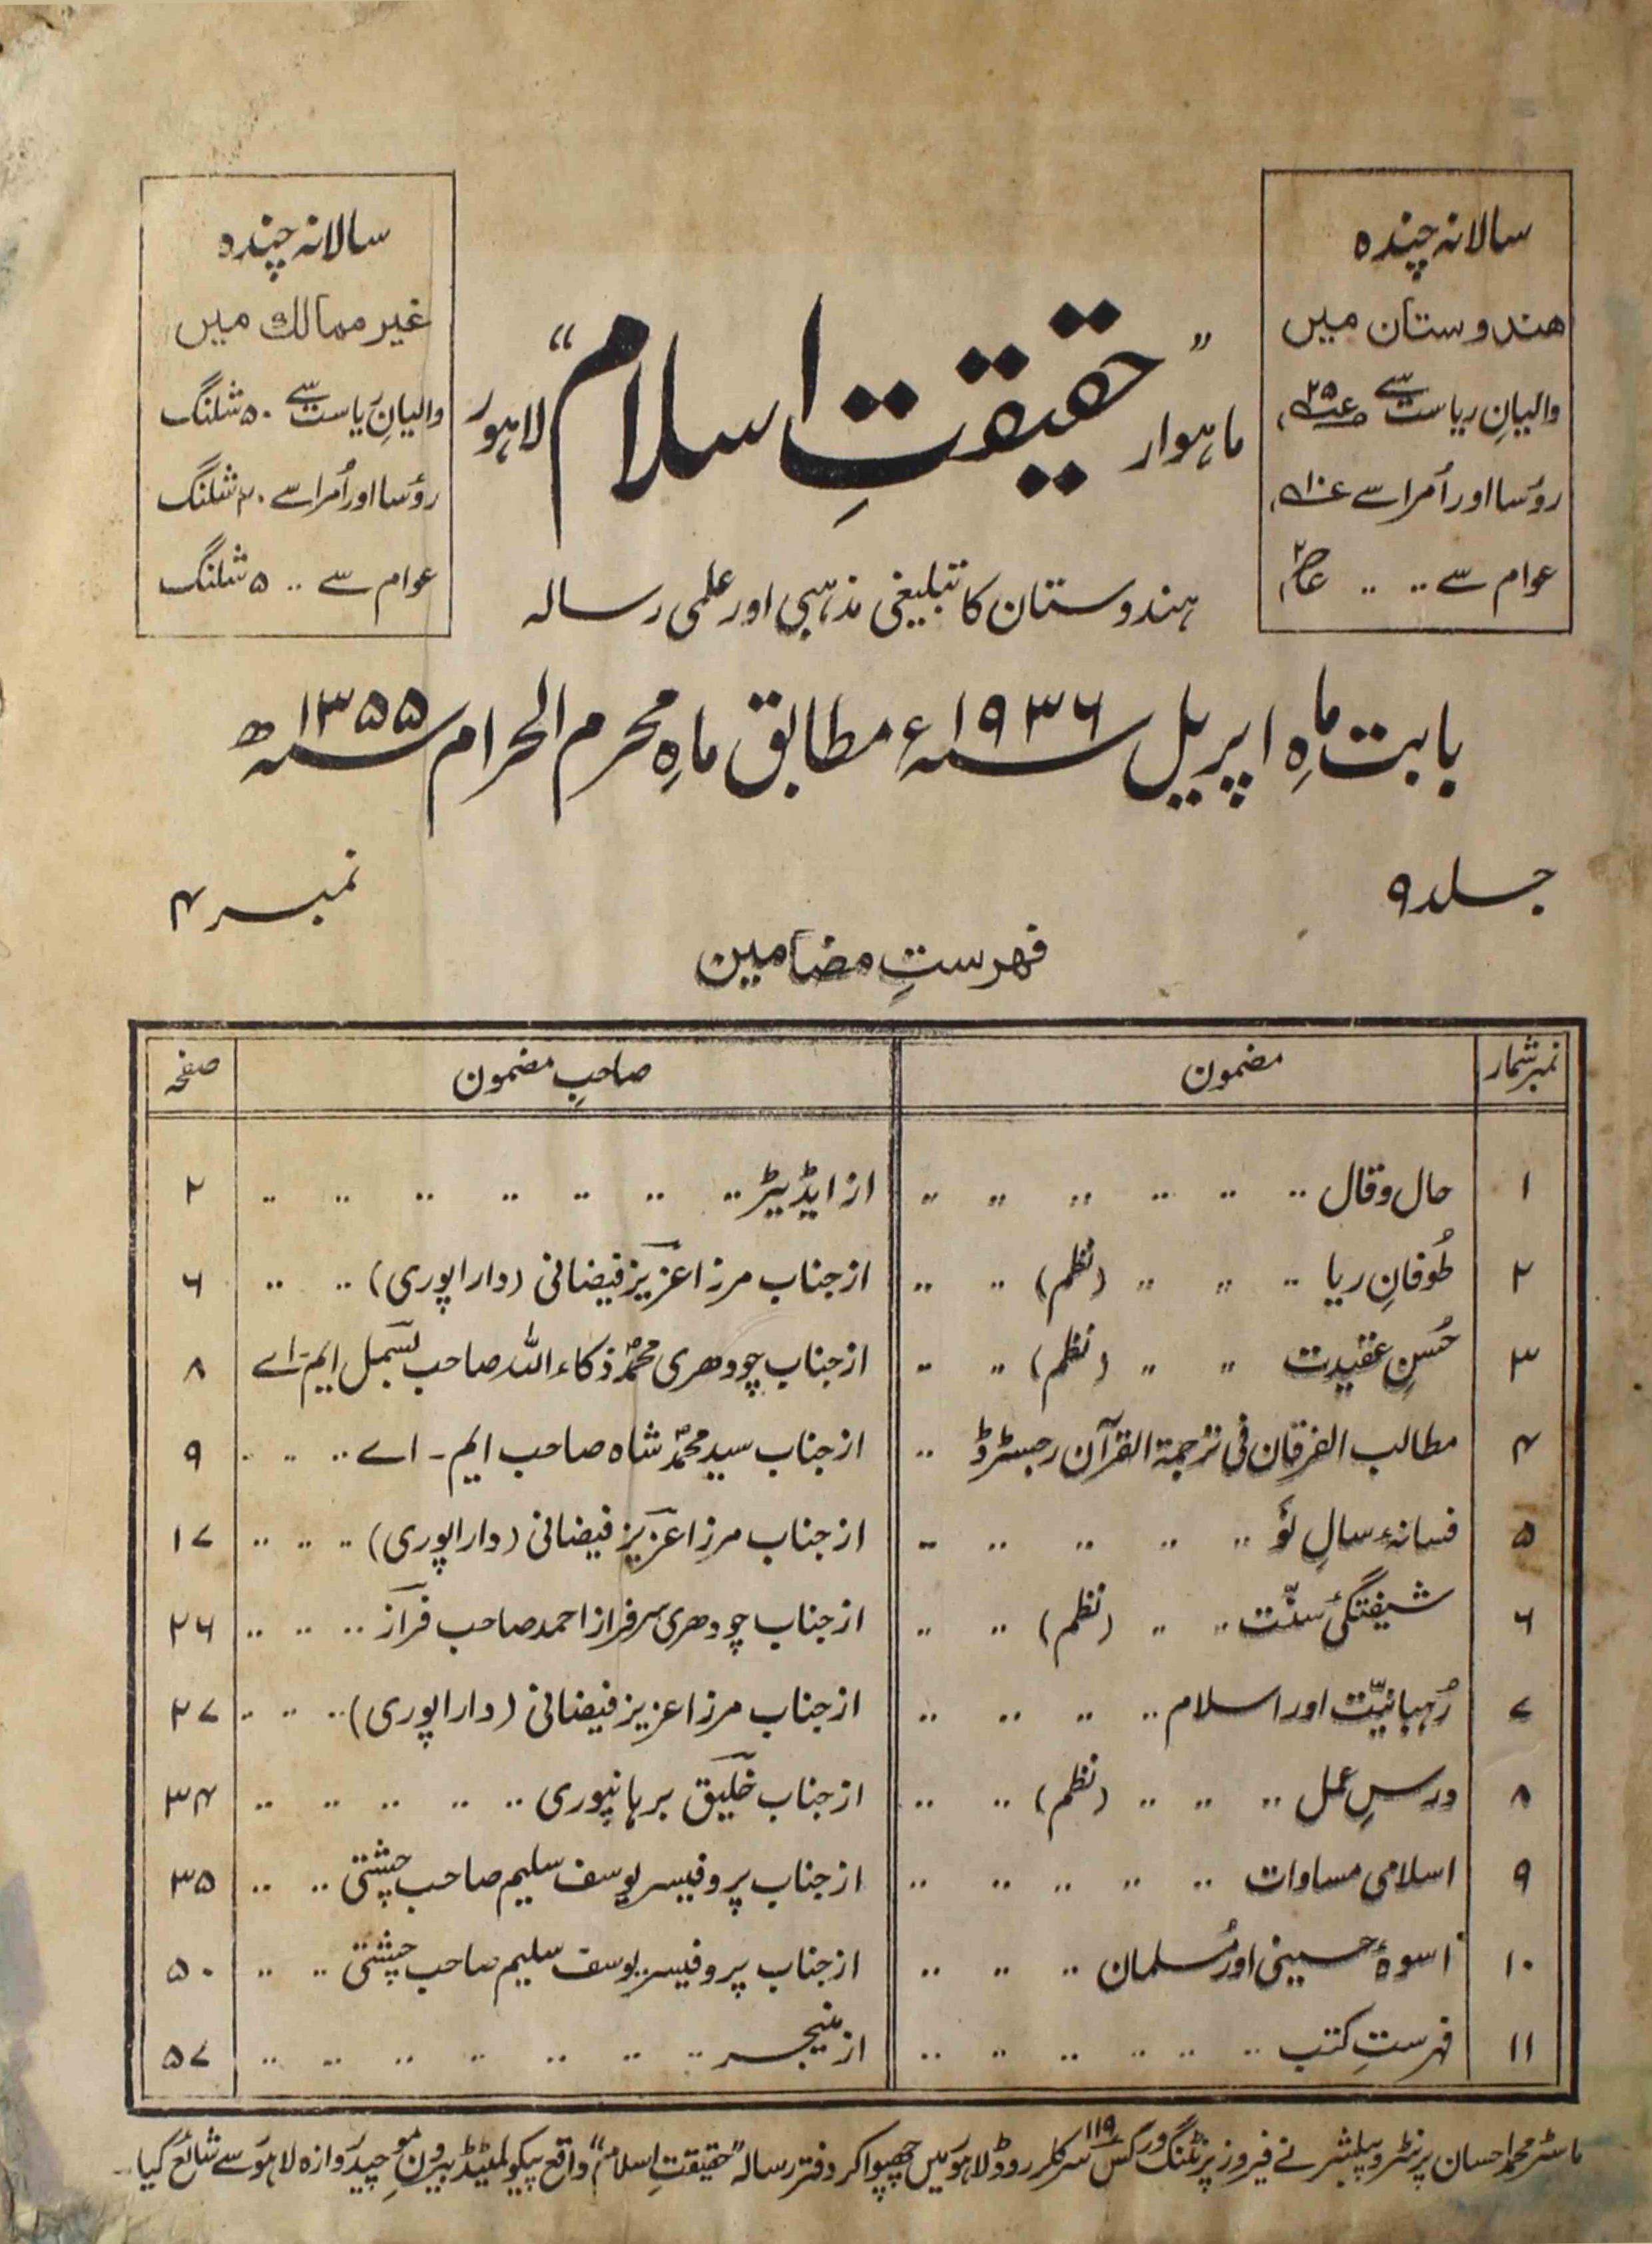 سالانہ چندہ
ھندوستان میں
والیانِ ریاست سے ۲۵
رؤسا اور اُمرا سے
عوام سے ‥ ‥
ماہوار
”حقیقتِ اسلام“
لاہور
ہندوستان کا تبلیغی مذہبی اور علمی رسالہ
سالانہ چندہ
غیر ممالک میں
والیانِ ریاست سے ۵۰ شلنگ
رؤسا اور اُمرا سے ۲۰ شلنگ
عوام سے ‥ ۵ شلنگ
بابت ماہِ اپریل سنہ ۱۹۳۶ء مطابق ماہِ محرم الحرام سنہ ۱۳۵۵ھ
جلد ۹
نمبر ۴
فہرستِ مضامین
نمبر شمار مضمون صاحبِ مضمون صفحہ
۱ حال و قال ‥ از ایڈیٹر ‥ ۲
۲ طُوفانِ ریا ‥ (نظم) ‥ از جناب مرزا عزیز فیضانی (داراپوری) ‥ ۶
۳ حُسنِ عقیدت ‥ (نظم) ‥ از جناب چودھری محمدؐ ذکاء اللہ صاحب بسمل ایم۔اے ۸
۴ مطالب الفرقان فی ترجمۃ القرآن رجسٹرڈ ‥ از جناب سید محمدؐ شاہ صاحب ایم۔ اے ‥ ۹
۵ فسانۂ سالِ نَو ‥ از جناب مرزا عزیز فیضانی (داراپوری) ‥ ۱۷
۶ شیفتگئ سنّت ‥ (نظم) ‥ از جناب چودھری سرفراز احمد صاحب فراز ‥ ۲۶
۷ رُہبانیّت اور اسلام ‥ از جناب مرزا عزیز فیضانی (داراپوری) ‥ ۲۷
۸ درسِ عمل ‥ (نظم) ‥ از جناب خلیق برہانپوری ‥ ۳۴
۹ اسلامی مساوات ‥ از جناب پروفیسر یوسف سلیم صاحب چشتی ‥ ۳۵
۱۰ اسوۂ حسینی اور مُسلمان ‥ از جناب پروفیسر یوسف سلیم صاحب چشتی ‥ ۵۰
۱۱ فہرستِ کتب ‥ از منیجر ‥ ۵۷
ماسٹر محمد احسان پرنٹر و پبلشر نے فیروز پرنٹنگ ورکس ۱۱۹ سرکلر روڈ لاہور میں چھپوا کر دفتر رسالہ ”حقیقتِ اسلام“ واقع پیکو لمیٹڈ بیرونِ موچیدروازہ لاہور سے شائع کیا۔